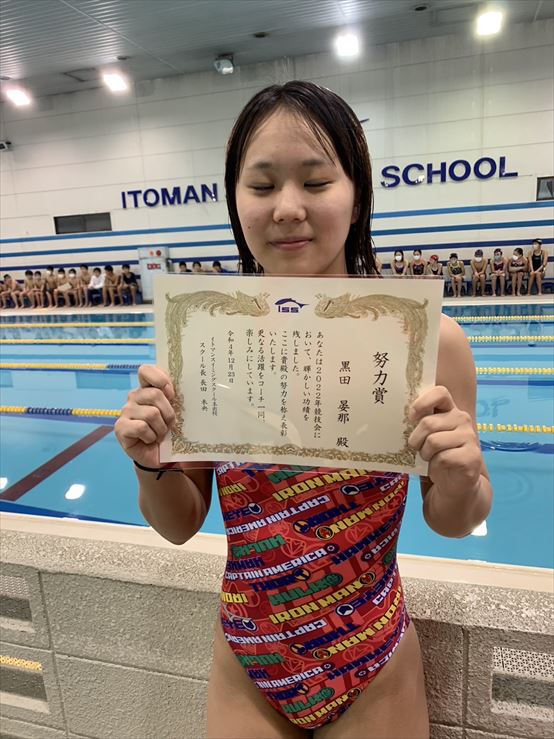 ITOMAN
SCHOOL
ISS
努力賞
黒田 晏那 殿
あなたは2022年競技会に
おいて、輝かしい功績を
残しました。
ここに貴殿の努力を称え表彰
いたします。
更なる活躍をコーチ一同、
楽しみにしています。
令和4年12月23日
スクール長 長田 未央
CAPTAIN AMERICA
IRON MAN
HULK
THOR
HAWKEYE